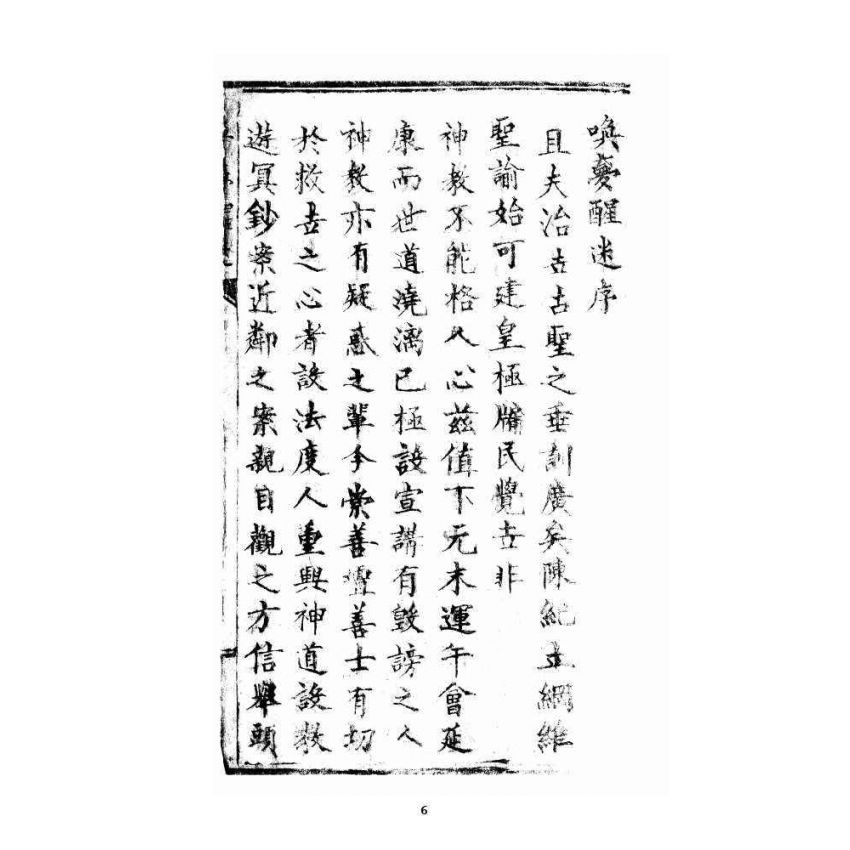 喚夢醒迷序
且夫治古古聖之垂訓廣矣陳紀立綱維
聖諭始可建皇極牖民覺古非
神教不能格人心茲值下元末運午會延
康而世道澆漓已極設宣講有毀謗之人
神教亦有疑惑之輩予崇善壇善士有切
於救古之心者設法度人重興神道設教
遊冥鈔案近鄰之案親目觀之方信舉頭
6